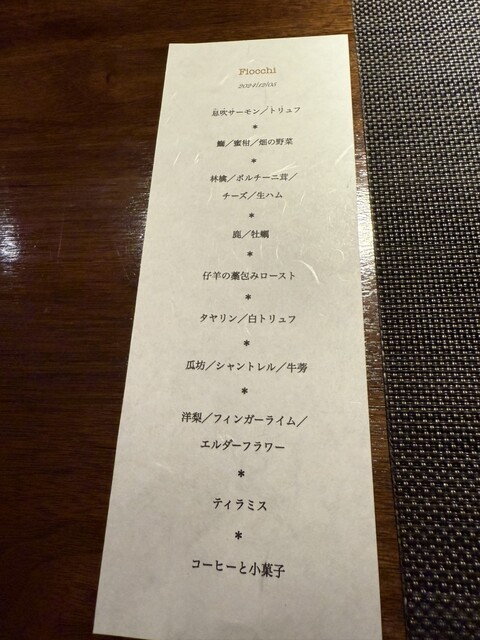 Fiocchi
息吹サーモン／トリュフ
*
鰤／蜜柑／畑の野菜
*
林檎／ポルチーニ茸／
チーズ／生ハム
*
鹿／牡蠣
*
仔羊の藁包みロースト
*
タヤリン／白トリュフ
*
瓜坊／シャントレル／牛蒡
*
洋梨／フィンガーライム／
エルダーフラワー
*
ティラミス
*
コーヒーと小菓子